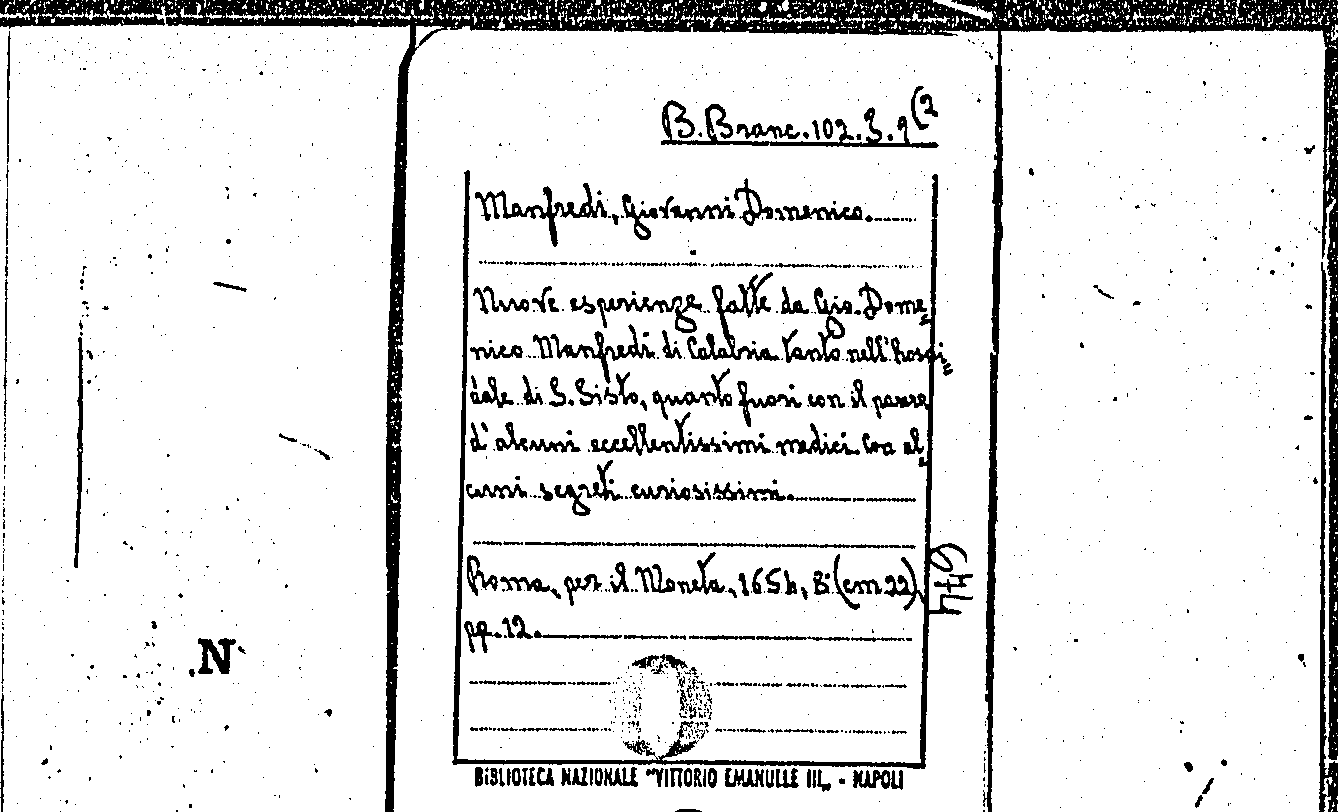 B. Branc. 102. 3. 9 (2
Manfredi, Giovanni Domenico.
Nuove esperienze fatte da Gio. Dome=
nico Manfredi di Calabria tanto nell'hospi=
dale di S. Sisto, quanto fuori con il parere
d'alcuni eccellentissimi medici con al=
cuni segreti curiosissimi.
Roma, per il Moneta, 1654, 8° (cm 22),
pp. 12.
644
N
BIBLIOTECA NAZIONALE "VITTORIO EMANULLE III„ - NAPOLI